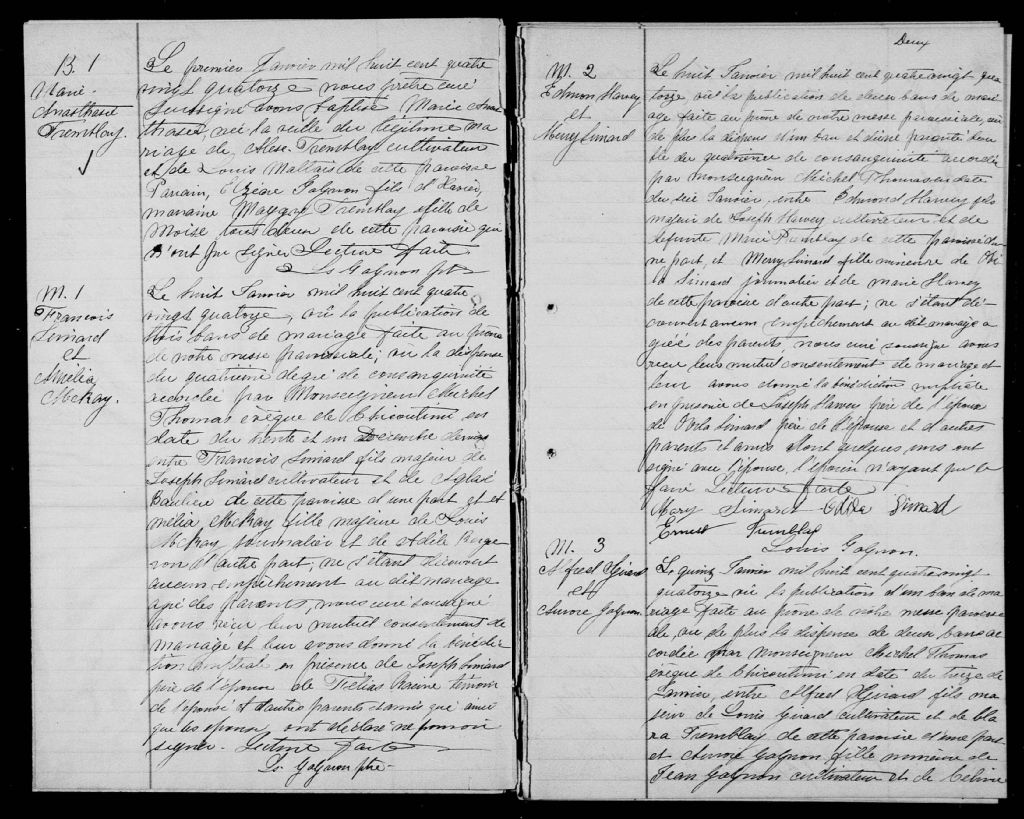 B. 1
Marie
Anasthasie
Tremblay.
Le premier Janvier mil huit cent quatre
vingt quatorze nous prêtre curé
soussigné avons baptisé Marie Anas
thasie, née la veille du légitime ma
riage de Alex. Tremblay cultivateur
et de Louise Maltais de cette paroisse
Parrain, Elzéar Gagnon fils d'Xavier,
marraine Tremblay fille de
Moïse tout deux de cette paroisse qui
n'ont pu signer Lecture faite
Ls Gagnon ptre
M. 1
François
Simard
et
Amélia
McKay.
Le huit Janvier mil huit cent quatre
vingt quatorze, vu la publication de
trois bans de mariage faite au prône
de notre messe paroissiale; vu la dispense
du quatrième degré de consanguinité
accordée par Monseigneur Michel
Thomas évêque de Chicoutimi en
date du trente et un Décembre dernier
entre François Simard fils majeur de
Joseph Simard cultivateur et de
Baulieu de cette paroisse d'une part et A
mélia McKay fille majeure de Louis
McKay journalier et de Adèle Berge
ron d'autre part; ne s'étant découvert
aucun empêchement au dit mariage
agré des parents, nous curé soussigné
avons reçu leur mutuel consentement de
mariage et leur avons donné la bénédic
tion nuptiale en présence de Joseph Simard
père de l'époux de Racine témoin
de l'épouse et d'autres parents et amis qui ainsi
que les époux, ont déclaré ne pouvoir
signer. Lecture faite
Ls Gagnon ptre
Deux
M. 2
Edmon Harvey
et
Merry Simard
Le huit Janvier mil huit cent quatre vingt qua
torze vu la publication de deux bans de mari
age faite au prône de notre messe paroissiale, vu
de plus la dispens d'un ban et d'une parenté dou
ble du quatrième de consanguinité accordée
par monseigneur Michel Thomas en date
du six Janvier, entre Edmond Harvey fils
majeur de Joseph Harvey cultivateur et de
défunte Marie Tremblay de cette paroisse d'u
ne part, et Merry Simard fille mineure de
Simard journalier et de Marie Harvey
de cette paroisse d'autre part; ne s'étant dé
couvert aucun empêchement au dit mariage a
gréé des parents nous curé soussigné avons
reçu leur mutuel consentement de mariage et
leur avons donné la bénédiction nuptiale
en présence de Joseph Harvey père de l'époux
de Simard père de l'épouse et d'autres
parents et amis dont quelques uns ont
signé avec l'épouse, l'époux n'ayant pu le
faire Lecture faite
Mary Simard Simard
Ernest Tremblay
Louis Gagnon.
M. 3
Alfred Girard
et
Aurore Gagnon.
Le quinze Janvier mil huit cent quatre vingt
quatorze vu la publication d'un ban de ma
riage faite au prône de notre messe paroissi
ale, vu de plus la dispense de deux bans ac
cordée par monseigneur Michel Thomas
évêque de Chicoutimi en date du treize de
Janvier, entre Alfred Girard fils ma
jeur de Louis Girard cultivateur et de Cla
ra Tremblay de cette paroisse d'une part
et Aurore Gagnon fille mineure de
Jean Gagnon cultivateur et de Célina